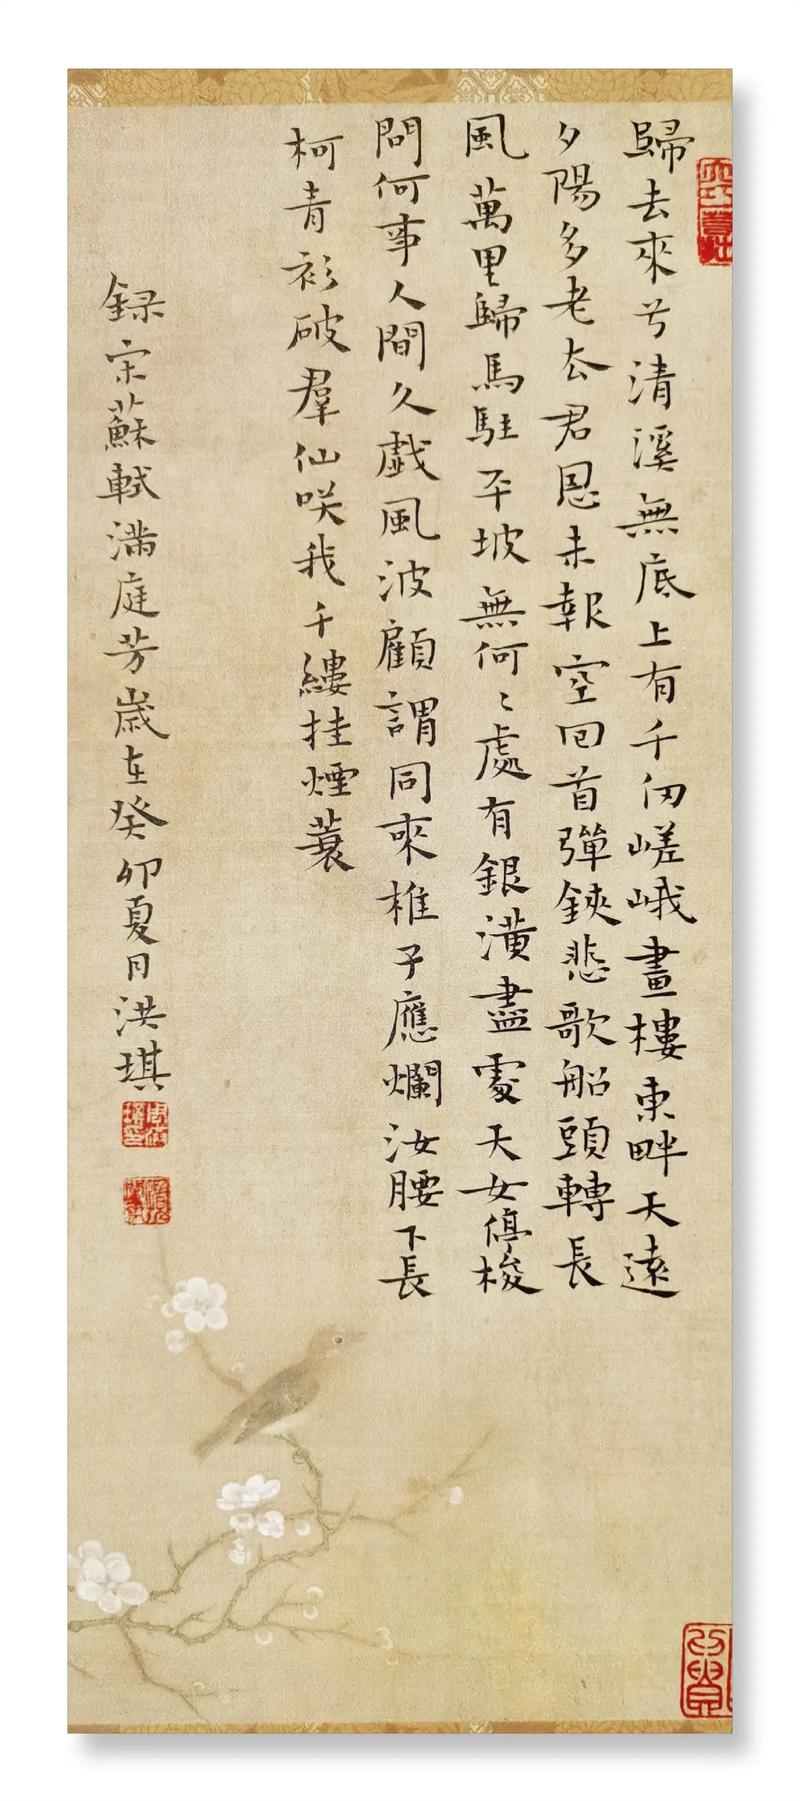 歸去來兮清溪無底上有千仞嵯峨畫樓東畔天遠
夕陽多老去君恩未報空回首彈鋏悲歌船頭轉長
風萬里歸馬駐平坡無何〻處有銀潢盡處天女停梭
問何事人間久戲風波顧謂同來稚子應爛汝腰下長
柯青衫破羣仙咲我千縷挂煙蓑
録宋蘇軾滿庭芳歲在癸卯夏月洪琪